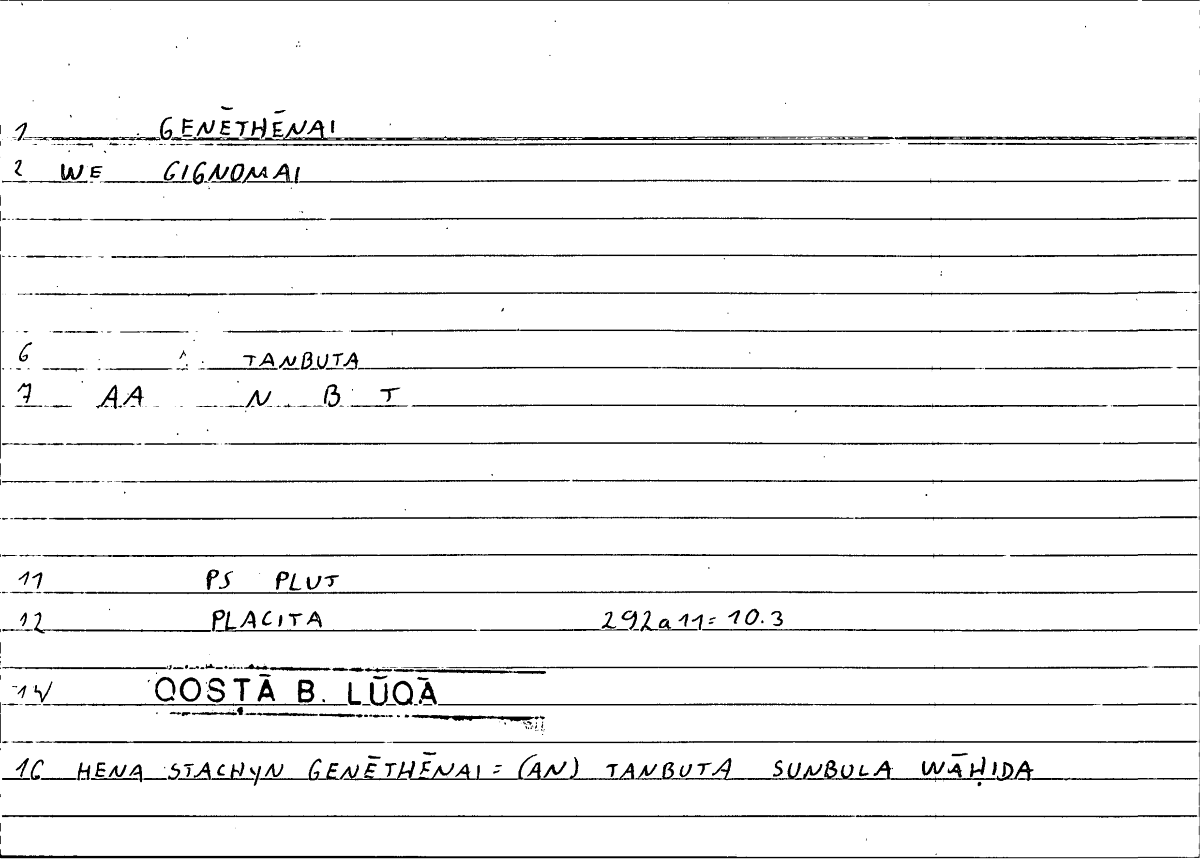 1 GENĒTHĒNAI
2 WE GIGNOMAI
6 TANBUTA
7 AA N B T
11 PS PLUT
12 PLACITA 292a11= 10.3
14 QOSṬĀ B. LŪQĀ
16 HENA STACHYN GENĒTHĒNAI = (AN) TANBUTA SUNBULA WĀḤIDA